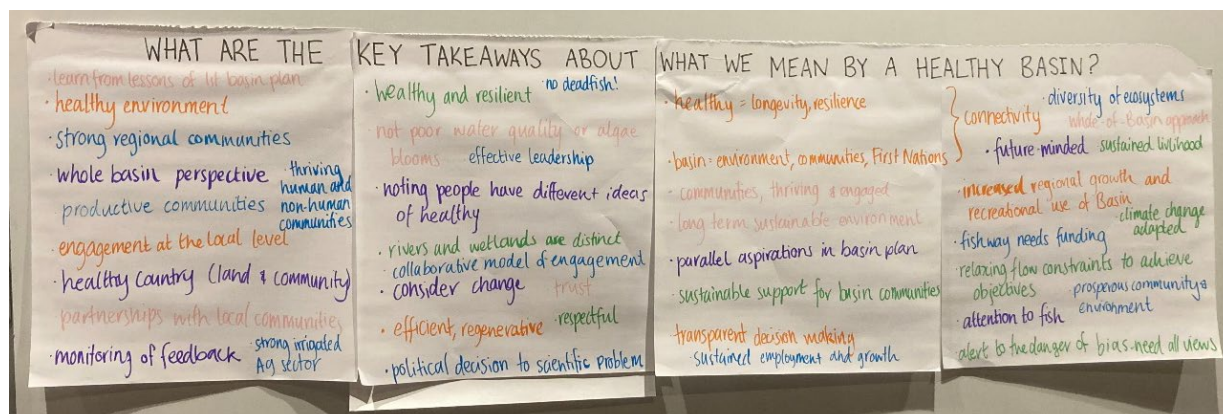 WHAT ARE THE KEY TAKEAWAYS ABOUT WHAT WE MEAN BY A HEALTHY BASIN?
·learn from lessons of 1st basin plan
·healthy environment
·strong regional communities
·whole basin perspective
·thriving
human and
non-human
communities
productive communities
·engagement at the local level
·healthy country (land & community)
partnerships with local communities
·monitoring of feedback
·strong irrigated
Ag sector
·healthy and resilient
·no deadfish!
·not poor water quality or algae
blooms
effective leadership
·noting people have different ideas
of healthy
·rivers and wetlands are distinct
·collaborative model of engagement
·consider change
trust
·efficient, regenerative
·respectful
·political decision to scientific problem
·healthy = longevity, resilience
·basin = environment, communities, First Nations
·communities, thriving & engaged
·long term sustainable environment
·parallel aspirations in basin plan
·sustainable support for basin communities
transparent decision making
·sustained employment and growth
·diversity of ecosystems
connectivity
whole-of-Basin approach
·future-minded
sustained livlihood
·increased regional growth and
recreational use of Basin
·climate change
adapted
·fishway needs funding
·relaxing flow constraints to achieve
objectives
·prosperous community &
environment
·attention to fish
alert to the danger of bias-need all views